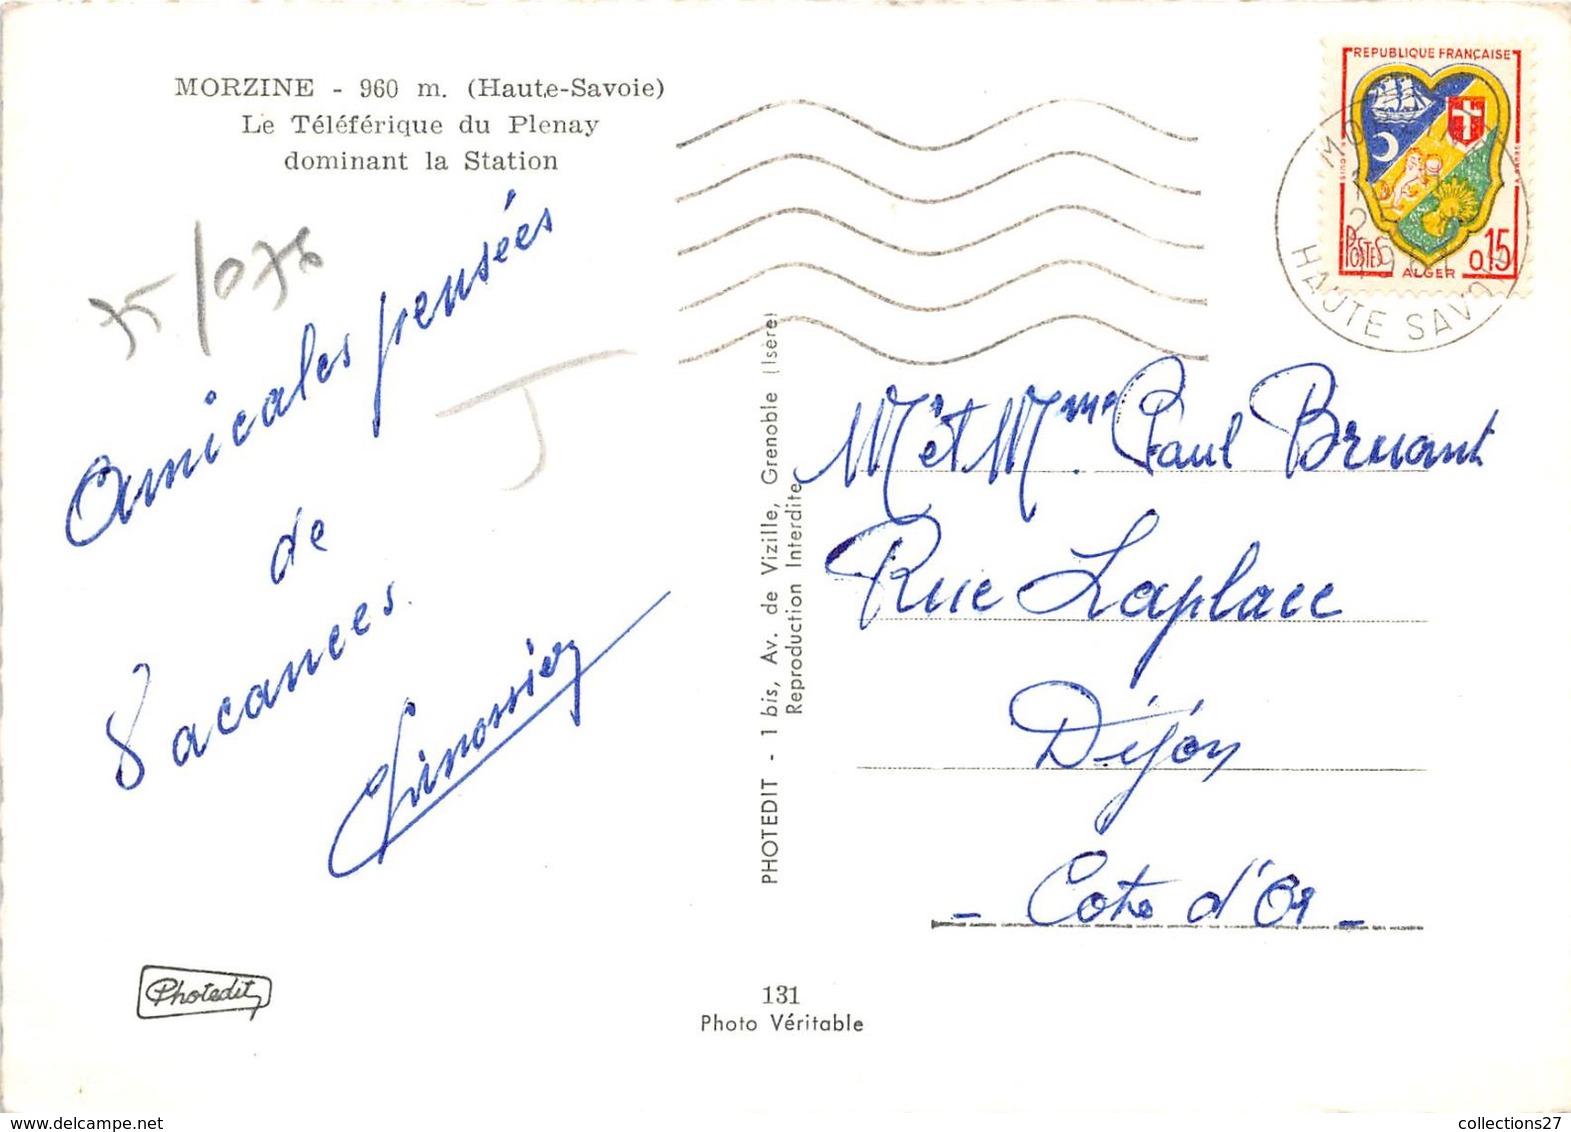 MORZINE - 960 m. (Haute-Savoie)
Le Téléférique du Plenay
dominant la Station
75/076
J
Amicales pensées
de
Vacances.
REPUBLIQUE FRANÇAISE
POSTES
ALGER
0,15
HAUTE SAVOIE
PHOTEDIT - 1 bis, Av. de Vizille, Grenoble (Isère)
Reproduction Interdite
Mr et Mme Paul Bruant
Rue Laplace
Dijon
- Cote d'Or -
Photedit
131
Photo Véritable
collections27